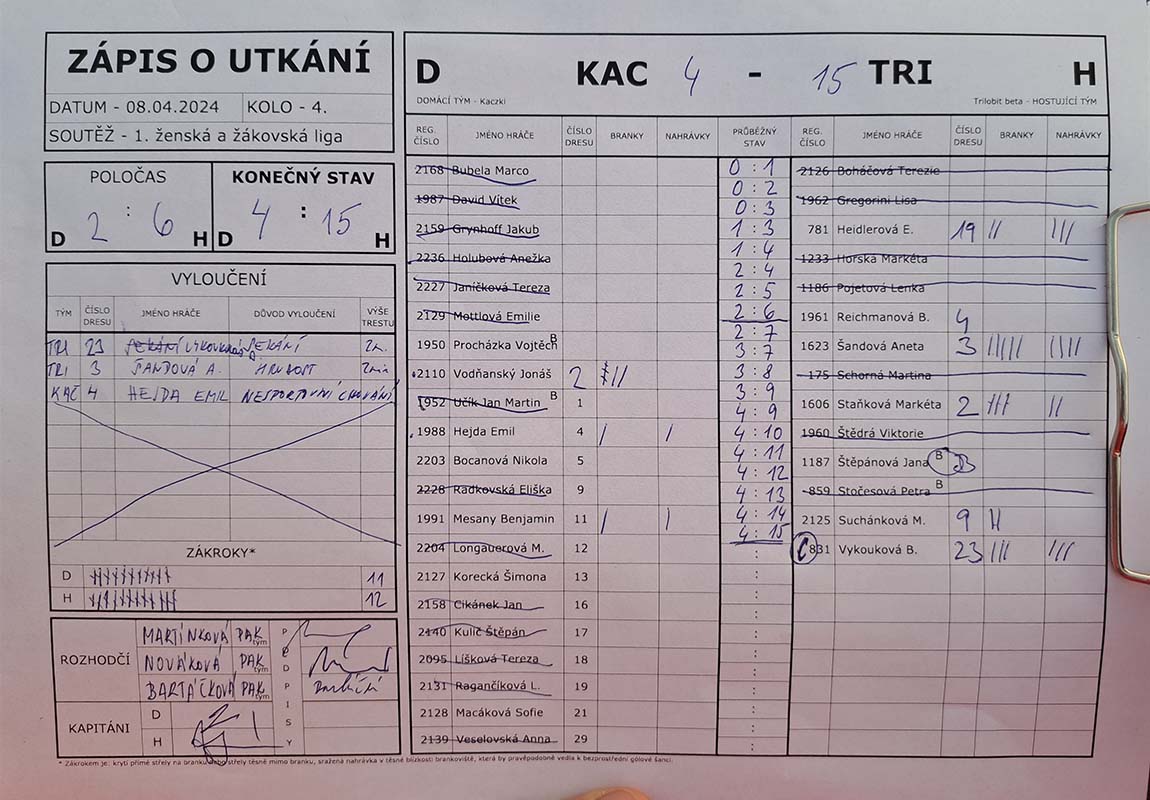 ZÁPIS O UTKÁNÍ
DATUM - 08.04.2024 KOLO - 4.
SOUTĚŽ - 1. ženská a žákovská liga
POLOČAS KONEČNÝ STAV
D 2 : 6 H D 4 : 15 H
VYLOUČENÍ
TÝM ČÍSLO DRESU JMÉNO HRÁČE DŮVOD VYLOUČENÍ VÝŠE TRESTU
TRI 23 SEKÁNÍ
TRI 3 ŠANDOVÁ A. HRUBOST 2min
KAČ 4 HEJDA EMIL NESPORTOVNÍ CHOVÁNÍ
ZÁKROKY*
D 11
H 12
ROZHODČÍ PODPISY
MARTÍNKOVÁ PAK tým
NOVÁKOVÁ PAK tým
BARTÁČKOVÁ PAK tým
KAPITÁNI D
H
D KAC 4 - 15 TRI H
DOMÁCÍ TÝM - Kaczki Trilobit beta - HOSTUJÍCÍ TÝM
REG. ČÍSLO JMÉNO HRÁČE ČÍSLO DRESU BRANKY NAHRÁVKY PRŮBĚŽNÝ STAV REG. ČÍSLO JMÉNO HRÁČE ČÍSLO DRESU BRANKY NAHRÁVKY
2168 Bubela Marco
1987 David Vítek
2159 Grynhoff Jakub
2236 Holubová Anežka
2227 Janíčková Tereza
2129 Mottlová Emilie
1950 Procházka Vojtěch B
2110 Vodňanský Jonáš 2
1952 Učík Jan Martin B 1
1988 Hejda Emil 4 / /
2203 Bocanová Nikola 5
2228 Radkovská Eliška 9
1991 Mesany Benjamin 11 / /
2204 Longauerová M. 12
2127 Korecká Šimona 13
2158 Cikánek Jan 16
2140 Kulič Štěpán 17
2095 Líšková Tereza 18
2131 Ragančíková L. 19
2128 Macáková Sofie 21
2139 Veselovská Anna 29
0 : 1
0 : 2
0 : 3
1 : 3
1 : 4
2 : 4
2 : 5
2 : 6
2 : 7
3 : 7
3 : 8
3 : 9
4 : 9
4 : 10
4 : 11
4 : 12
4 : 13
4 : 14
4 : 15
2126 Boháčová Terezie
1962 Gregorini Lisa
781 Heidlerová E. 19 // ///
1233 Horská Markéta
1186 Pojetová Lenka
1961 Reichmanová B. 4
1623 Šandová Aneta 3 ///// ////
175 Schorná Martina
1606 Staňková Markéta 2 /// //
1960 Štědrá Viktorie
1187 Štěpánová Jana B
859 Stočesová Petra B
2125 Suchánková M. 9 //
C 831 Vykouková B. 23 /// ///
* Zákrokem je: krytí přímé střely na branku nebo střely těsně mimo branku, sražená nahrávka v těsné blízkosti brankoviště, která by pravěpodobně vedla k bezprostřední gólové šanci.